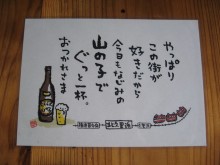 やっぱり
この街が
好きだから
今日もなじみの
山の子で
ぐっと一杯。
おつかれさま